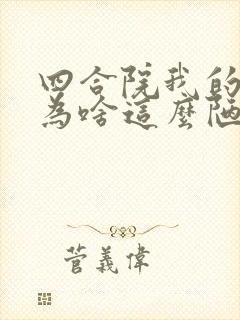 四合院我的
為啥這麼陋
菅義偉